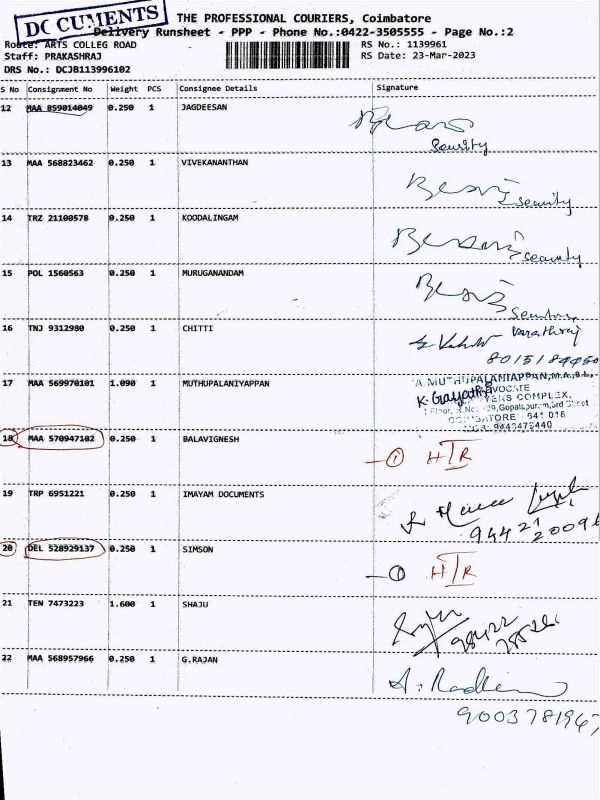 DOCUMENTS
THE PROFESSIONAL COURIERS, Coimbatore
Delivery Runsheet - PPP - Phone No.:0422-3505555 - Page No.:2
Route: ARTS COLLEG ROAD
RS No.: 1139961
Staff: PRAKASHRAJ
RS Date: 23-Mar-2023
DRS No.: DCJB113996102
S No Consignment No Weight PCS Consignee Details Signature
12 MAA 859014049 0.250 1 JAGDEESAN
Security
13 MAA 568823462 0.250 1 VIVEKANANTHAN
Security
14 TRZ 21100578 0.250 1 KOODALINGAM
Security
15 POL 1560563 0.250 1 MURUGANANDAM
16 TNJ 9312980 0.250 1 CHITTI
Varathraj
17 MAA 569970101 1.090 1 MUTHUPALANIYAPPAN
A.MUTHUPALANIAPPAN,M.A.,B.L.,
K. Gayathri ADVOCATE
COMPLEX,
COIMBATORE - 641 018
18 MAA 570947102 0.250 1 BALAVIGNESH
1 HTR
19 TRP 6951221 0.250 1 IMAYAM DOCUMENTS
20 DEL 528929137 0.250 1 SIMSON
1 HTR
21 TEN 7473223 1.600 1 SHAJU
22 MAA 568957966 0.250 1 G.RAJAN